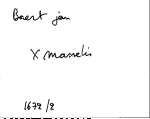 Baert jan
X masselis
1672/2